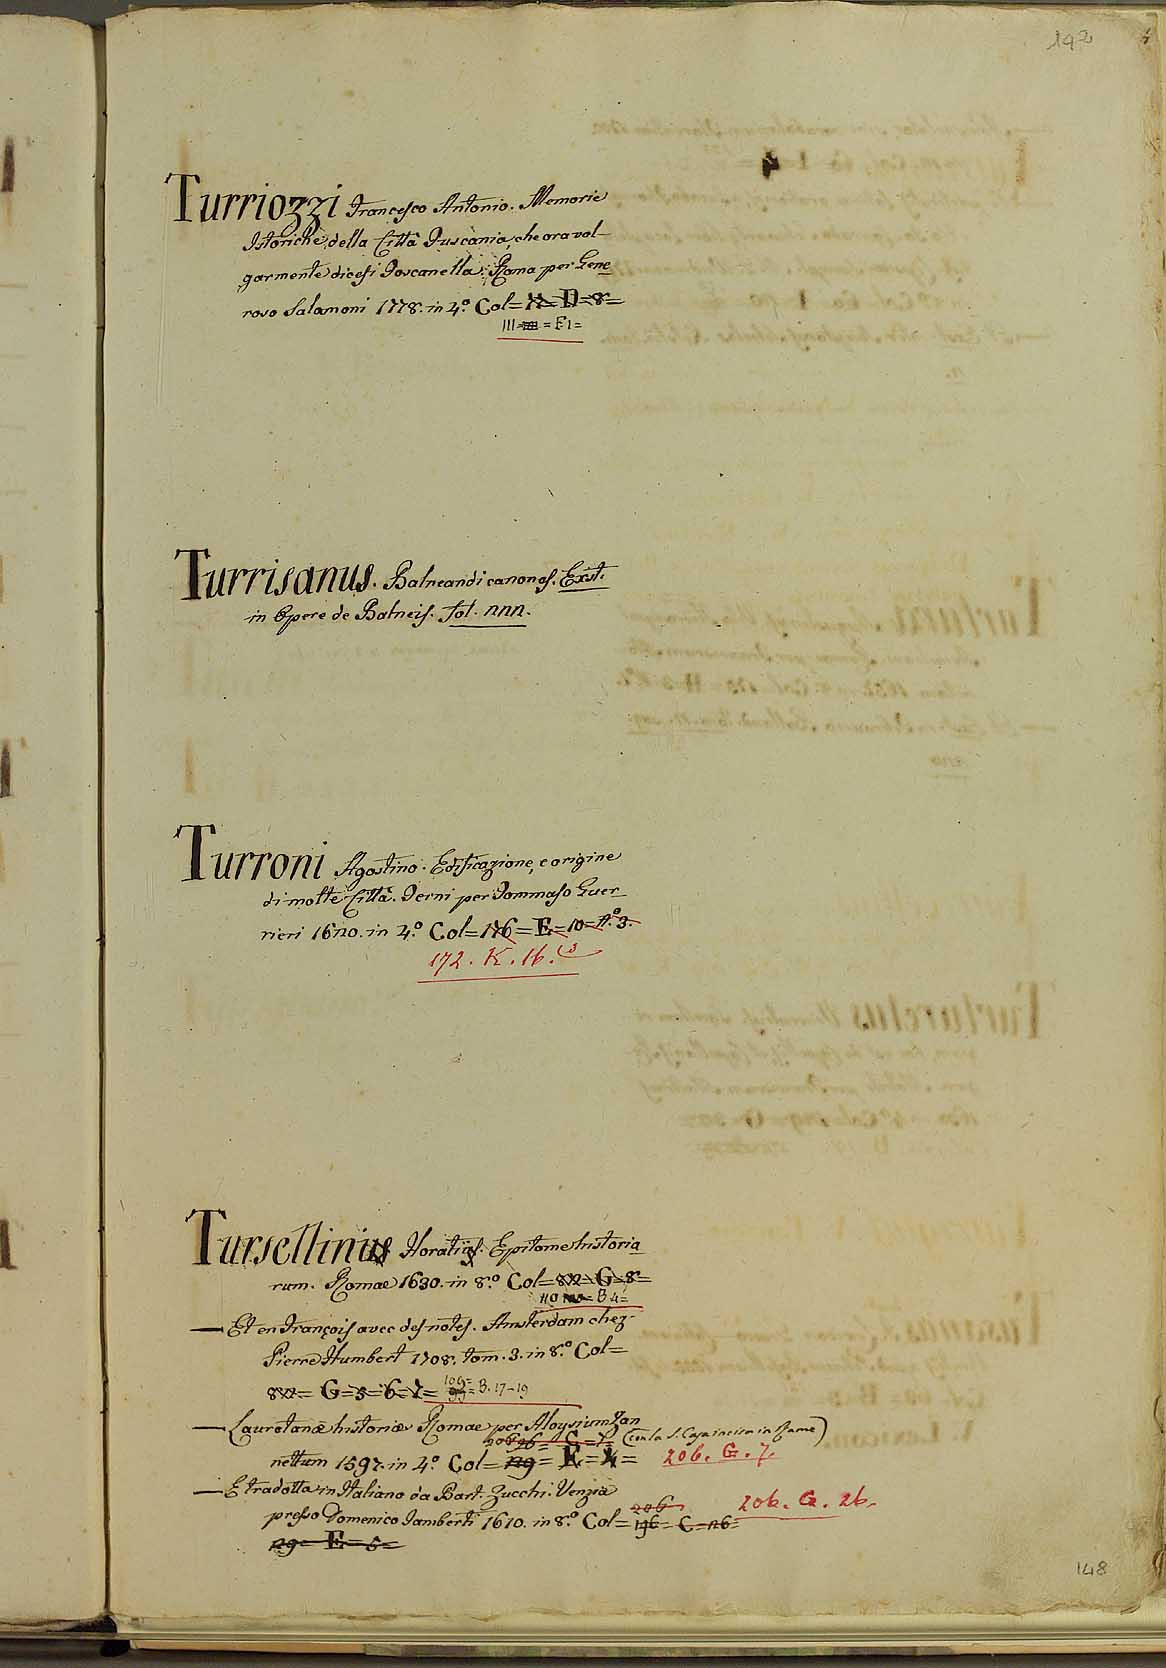 142
Turriozzi Francesco Antonio. Memorie
Istoriche della Città Tuscania, che ora vol-
garmente dicesi Toscanella. Roma per Gene
roso Salomoni 1778. in 4.º Col= D=8=
III = F1=
Turrisanus. Balneandi canones. Exst.
in Opere de Balneis. Fol. nnn.
Turroni Agostino. Edificazione, e origine
di molte Città. Terni per Tommaso Guer-
rieri 1620. in 4.º Col=176=E=10=n.º3.
172. K. 16. (3
Tursellinius Horatius. Epitome historia
rum. Romae 1630. in 8.º Col= G=8=
110 = B 4=
— Et en François avec des notes. Amsterdam chez
Pierre Humbert 1708. tom. 3. in 8.º Col=
= G=5=6=7= 109= = B. 17-19
— Lauretanæ historiæ Romae per Aloysium Zan
= C=7= (con la S. Casa incisa in Rame)
nettum 1597. in 4.º Col= = E= = 206. G. 7.
— E tradotta in Italiano da Bart. Zucchi. Venzia
presso Domenico Jamberti 1610. in 8.º Col= 206 196= C=26= 206. G. 26.
129= E=5=
148